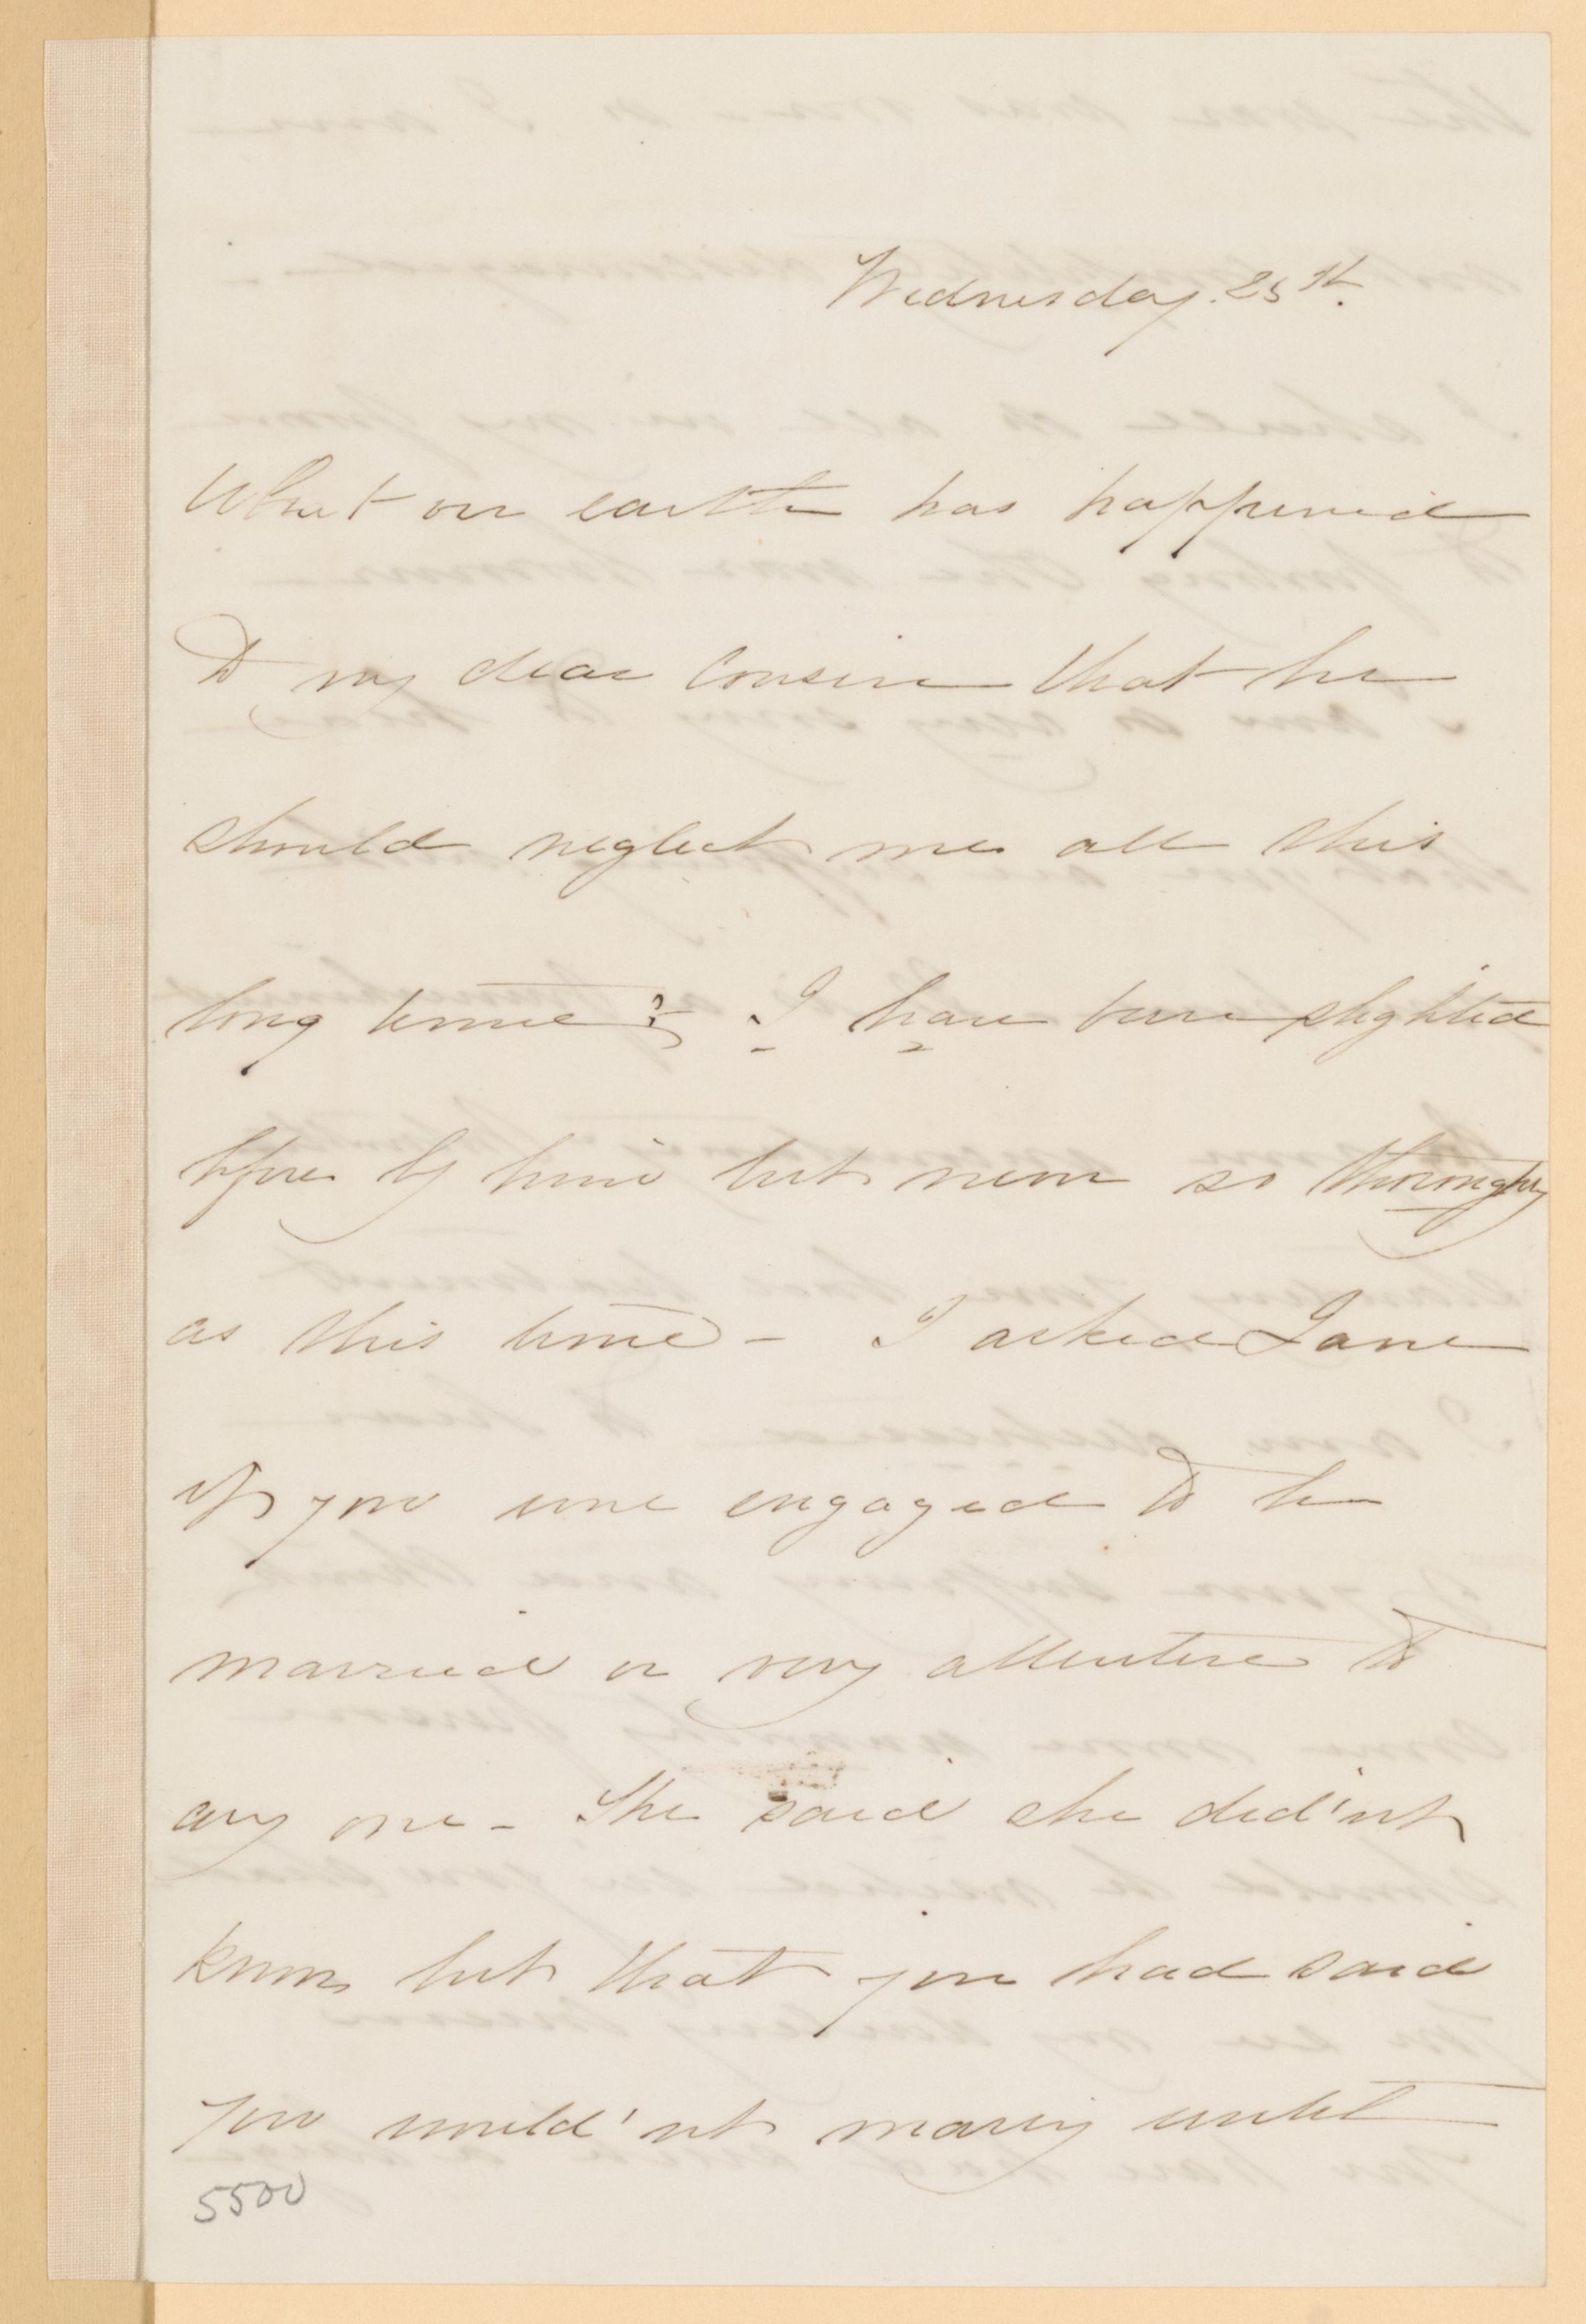 Wednesday. 25th.
What on earth has happened
to my dear Cousin that he
should neglect me all this
long time? I have been slighted
before by him but never so thoroughly
as this time - I asked Jane
if you were engaged to be
married or very attentive to
any one - She said she did'nt
know but that you had said
you would'nt marry until
5500